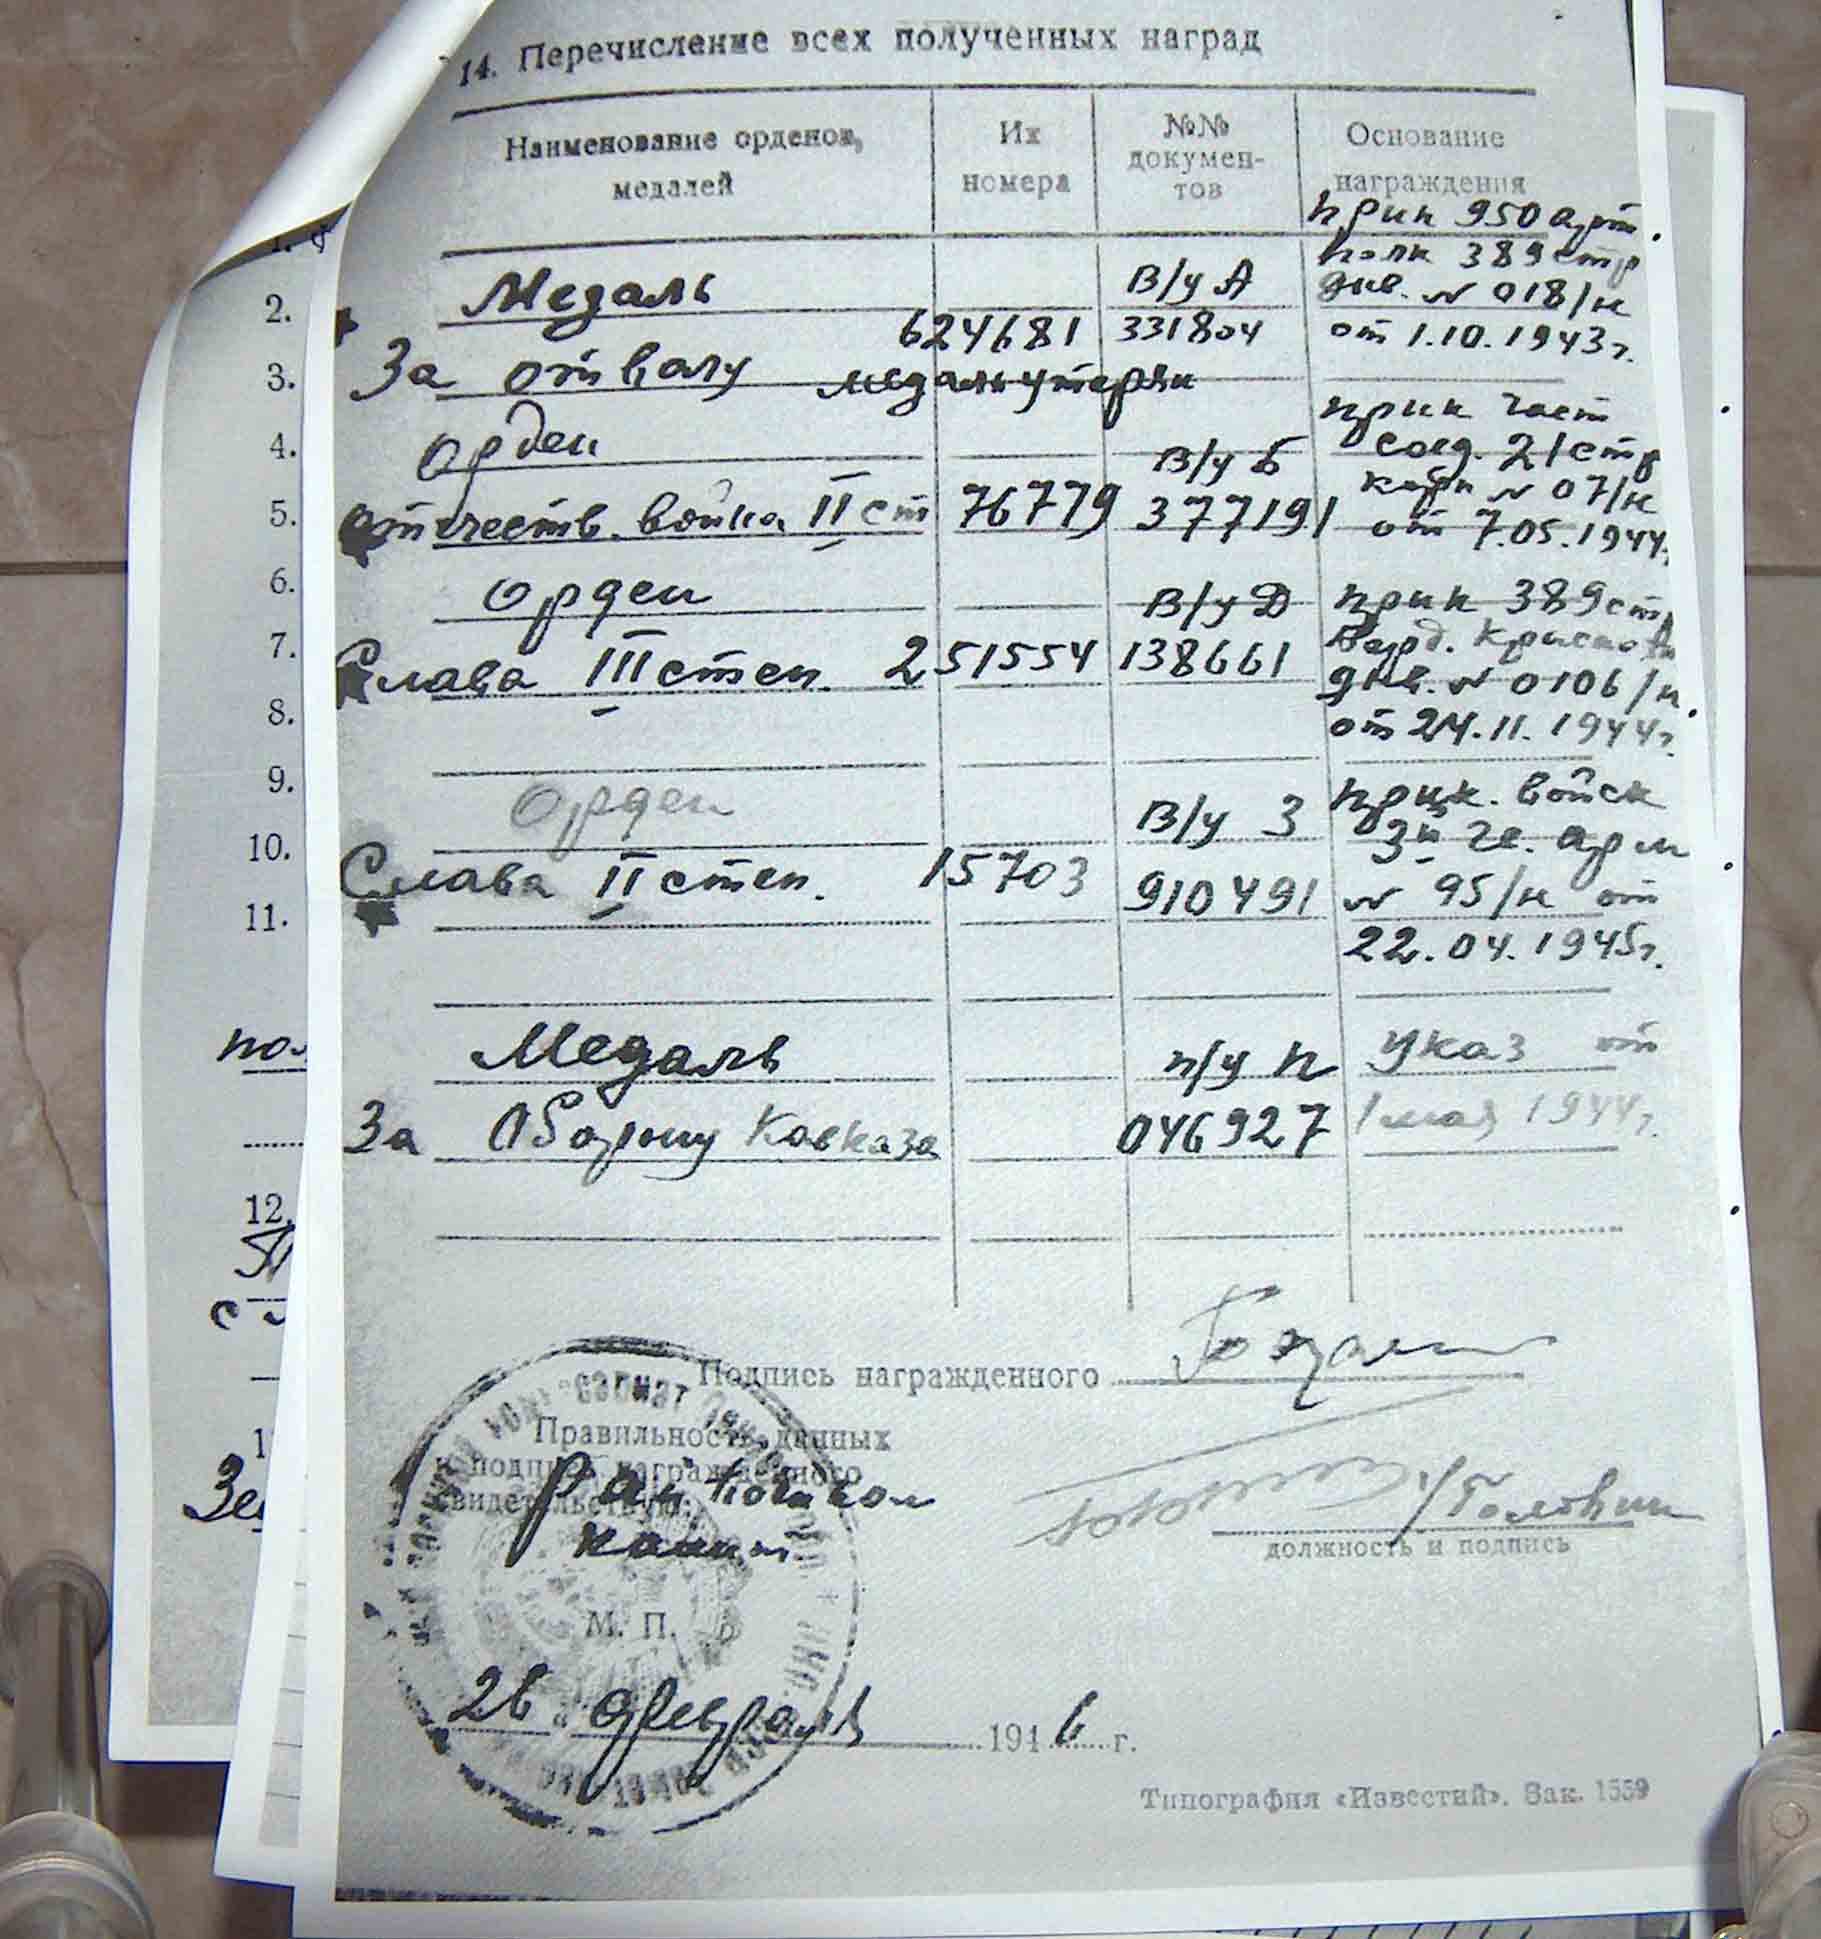 14. Перечисление всех полученных наград
Наименование орденов, медалей
Их номера
№№ докумен-
тов
Основание награждения
Медаль
За отвагу
624681
медаль утерян
В/у А
331804
прик 950 арт.
полк 389 стр
див. № 018/н
от 1.10.1943г.
Орден
отечеств. война II ст
76779
В/у Б
377191
прик част
соед. 21 стр
корп № 07/н
от 7.05.1944г.
орден
Слава III степ.
251554
В/у Д
138661
прик 389 стр
див. № 0106/н.
от 24.11.1944г.
Орден
Слава II степ.
15703
В/у З
910491
прик. войск
3й гв. арм
№ 95/н от
22.04.1945г.
Медаль
За Оборону Кавказа
п/у п
046927
Указ от
1 мая 1944г.
Подпись награжденного
Правильность данных
и подпись награжденного
свидетельствую:
капит.
/Головин
должность и подпись
М. П.
26 февраля 1946 г.
Типография «Известий». Зак. 1559
2.
3.
4.
5.
6.
7.
8.
9.
10.
11.
12.